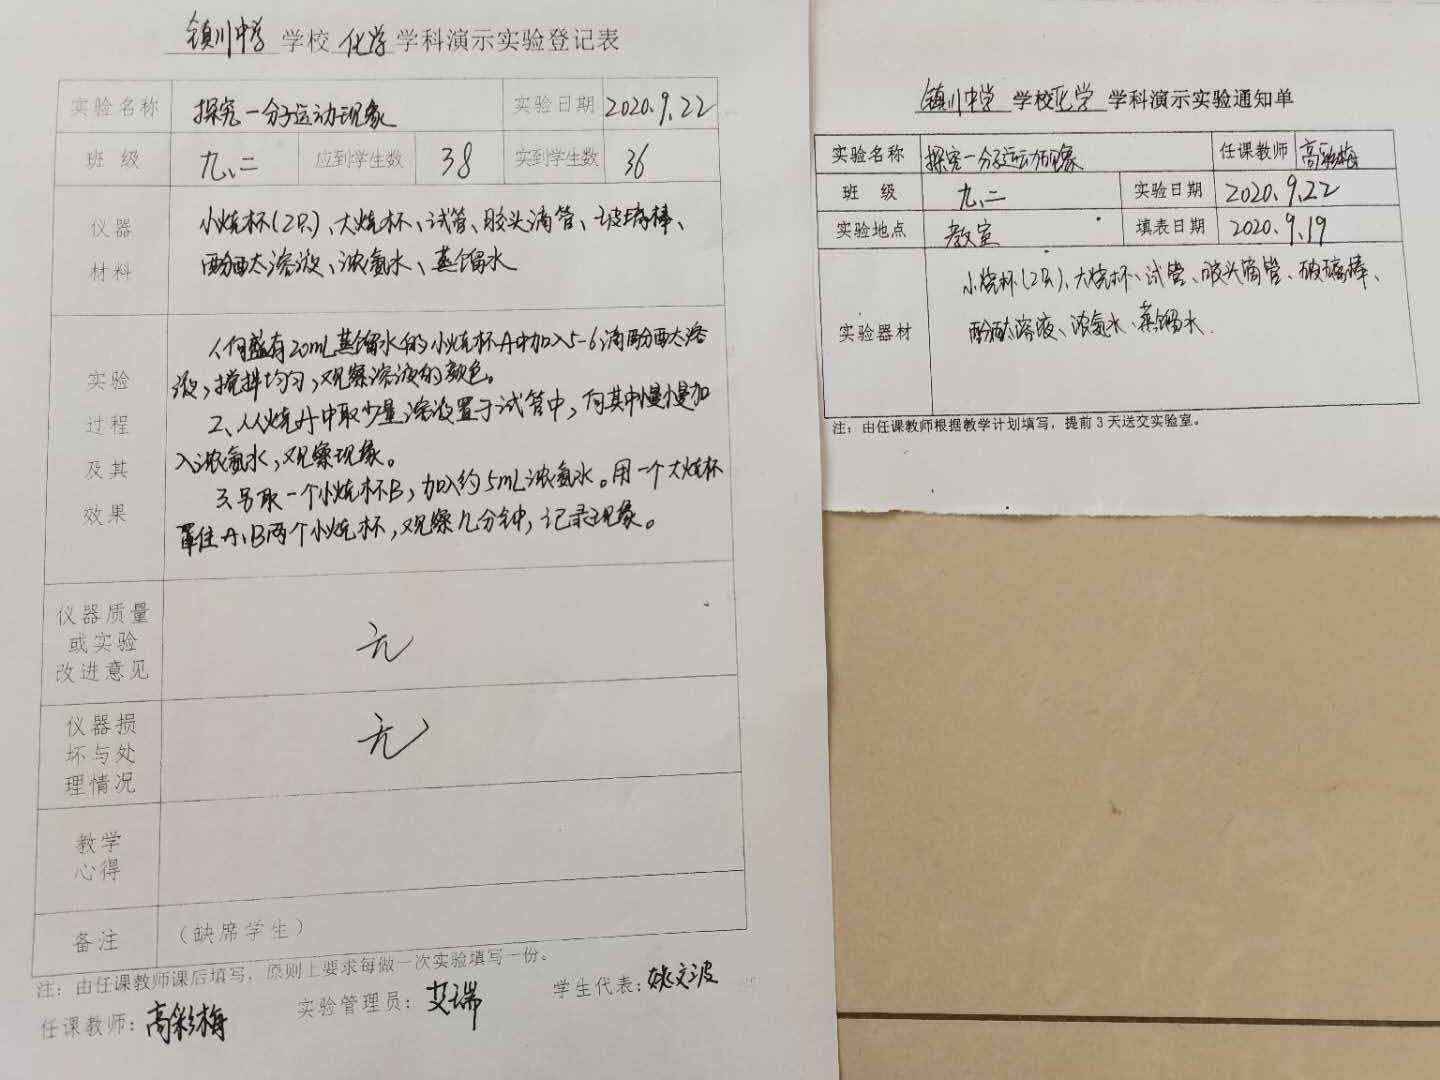 镇川中学 学校 化学 学科演示实验登记表
实验名称 探究一分子运动现象 实验日期 2020.9.22
班 级 九、二 应到学生数 38 实到学生数 36
仪器 小烧杯(2只)、大烧杯、试管、胶头滴管、玻璃棒、
材料 酚酞溶液、浓氨水、蒸馏水
实验 过程 及其 效果
1、向盛有20mL蒸馏水的小烧杯A中加入5-6滴酚酞溶
液,搅拌均匀,观察溶液的颜色。
2、从烧杯中取少量溶液置于试管中,向其中慢慢加
入浓氨水,观察现象。
3、另取一个小烧杯B,加入约5mL浓氨水。用一个大烧杯
罩住A、B两个小烧杯,观察几分钟,记录现象。
仪器质量
或实验 无
改进意见
仪器损
坏与处 无
理情况
教学
心得
备注 (缺席学生)
注:由任课教师课后填写,原则上要求每做一次实验填写一份。
任课教师:高彩梅 实验管理员:艾瑞 学生代表:姚文波
镇川中学 学校化学 学科演示实验通知单
实验名称 探究一分子运动现象 任课教师 高彩梅
班 级 九、二 实验日期 2020.9.22
实验地点 教室 填表日期 2020.9.19
实验器材 小烧杯(2只)、大烧杯、试管、胶头滴管、玻璃棒、
酚酞溶液、浓氨水、蒸馏水.
注:由任课教师根据教学计划填写,提前3天送交实验室。